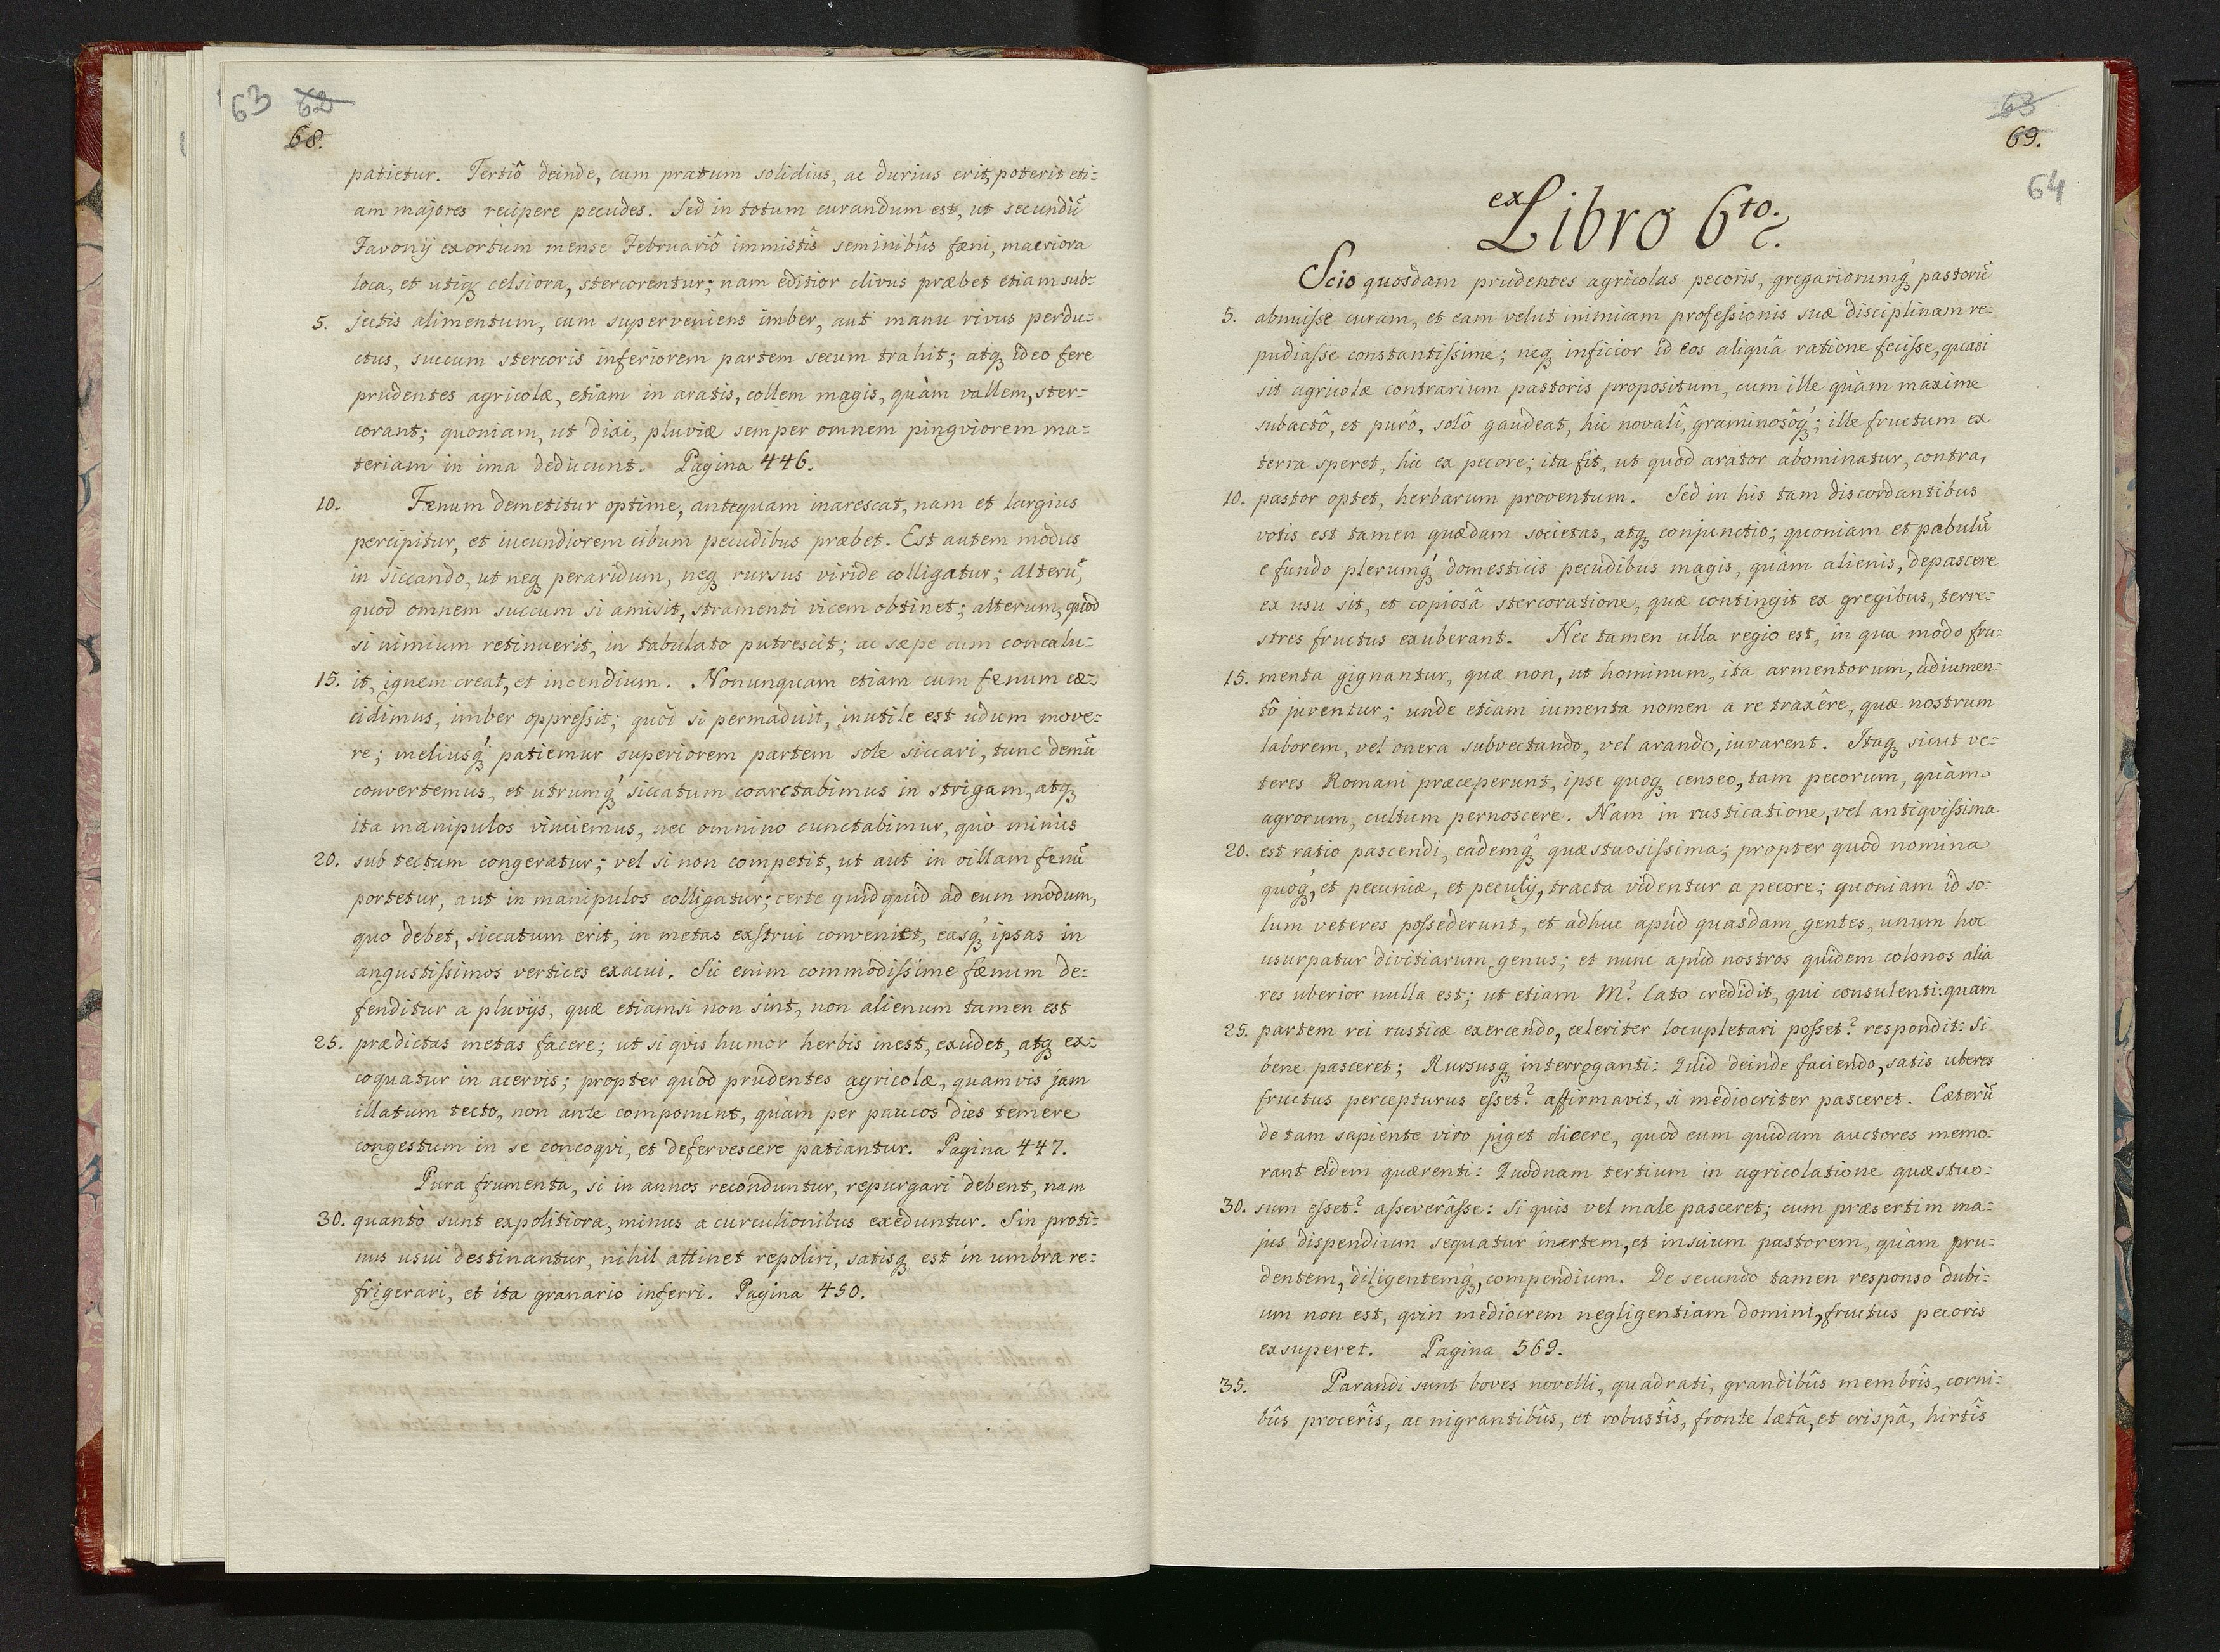 63 62
68.
patietur. Tertiô deinde, cum pratum solidius, ac durius erit, poterit eti=
am majores recipere pecudes. Sed in totum curandum est, ut secundū
Favonij exortum mense Februariô immistîs seminibûs fæni, macriora
loca, et utiqꝫ celsiora, stercorentur; nam editior clivus præbet etiam sub=
5. jectis alimentum, cum superveniens imber, aut manu rivus perdu=
ctus, succum stercoris inferiorem partem secum trahit; atqꝫ ideo fere
prudentes agricolæ, etiam in aratis, collem magis, quàm vallem, ster=
corant; quoniam, ut dixi, pluviæ semper omnem pingviorem ma=
teriam in ima deducunt. Pagina 446.
10. Fænum demetitur optime, antequam inarescat, nam et largius
percipitur, et iucundiorem cibum pecudibus præbet. Est autem modus
in siccando, ut neqꝫ peraridum, neqꝫ rursus viride colligatur; alterū,
quod omnem succum si amisit, stramenti vicem obtinet; alterum, quod
si nimium retinuerit, in tabulato putrescit; ac sæpe cum concalu=
15. it, ignem creat, et incendium. Nonunquam etiam cum fænum cæ=
cidimus, imber oppreſsit; quòi si permaduit, inutile est udum move=
re; meliusqꝫ́ patiemur superiorem partem sole siccari, tunc demū
convertemus, et utrumqꝫ́ siccatum coarctabimus in strigam, atqꝫ
ita manipulos vinciemus, nec omnino cunctabimur, quò minus
20. sub tectum congeratur; vel si non competit, ut aut in villam fenū
portetur, aut in manipulos colligatur; certe quidquid ad eum modum,
quo debet, siccatum erit, in metas exſtrui conveniet, easqꝫ́ ipsas in
angustiſsimos vertices exacui. Sic enim commodiſsime fænum de=
fenditur a pluvijs, quæ etiamsi non sint, non alienum tamen est
25. prædictas metas facere; ut si qvis humor herbis inest, exudet, atqꝫ ex=
coquatur in acervis; propter quod prudentes agricolæ, quamvis jam
illatum tecto, non ante componunt, quàm per paucos dies temere
congestum in se concoqvi, et defervescere patiantur. Pagina 447.
Pura frumenta, si in annos reconduntur, repurgari debent, nam
30. quantò sunt expolitiora, minus a curculionibus exeduntur. Sin proti=
nus usui destinantur, nihil attinet repoliri, satisqꝫ est in umbra re=
frigerari, et ita granario inferri. Pagina 450.
63
69.
64
ex Libro 6to.
Scio quosdam prudentes agricolas pecoris, gregariorumqꝫ́ pastorū
5. abnuiſse curam, et eam velut inimicam profeſsionis suæ disciplinam re=
pudiaſse constantiſsime; neqꝫ inficior id eos aliquâ ratione feciſse, quasi
sit agricolæ contrarium pastoris propositum, cum ille quàm maxime
subactô, et purô, solô gaudeat, hic novalî, graminosôqꝫ́; ille fructum ex
terra speret, hic ex pecore; ita fit, ut quod arator abominatur, contra,
10. pastor optet, herbarum proventum. Sed in his tam discordantibus
votis est tamen quædam societas, atqꝫ conjunctio; quoniam et pabulū
e fundo plerumqꝫ́ domesticis pecudibus magis, quàm alienis, depascere
ex usu sit, et copiosâ stercoratione, quæ contingit ex gregibus, terre=
stres fructus exuberant. Nec tamen ulla regio est, in qua modo fru=
15. menta gignantur, quæ non, ut hominum, ita armentorum, adiumen=
tô juventur; unde etiam iumenta nomen a re traxêre, quæ nostrum
laborem, vel onera subvectando, vel arando, iuvarent. Itaqꝫ sicut ve=
teres Romani præceperunt, ipse quoqꝫ censeo, tam pecorum, quàm
agrorum, cultum pernoscere. Nam in rusticatione, vel antiqviſsima
20. est ratio pascendi, eademqꝫ́ quæstuosiſsima; propter quod nomina
quoqꝫ́, et pecuniæ, et peculij, tracta videntur a pecore; quoniam id so=
lum veteres poſsederunt, et adhuc apud quasdam gentes, unum hoc
usurpatur divitiarum genus; et nunc apud nostros quidem colonos alia
res uberior nulla est; ut etiam M. Cato credidit, qui consulenti: quam
25. partem rei rusticæ exercendo, celeriter locupletari poſset? respondit: Si
bene pasceret; Rursusqꝫ interroganti: Quid deinde faciendo, satis uberes
fructus percepturus eſset? affirmavit, si mediocriter pasceret. Cæterū
de tam sapiente viro piget dicere, quod eum quidam auctores memo=
rant eidem quærenti: Quodnam tertium in agricolatione quæstuo=
30. sum eſset? aſseverâſse: Si quis vel male pasceret; cum præsertim ma=
jus dispendium sequatur inertem, et inscium pastorem, quàm pru=
dentem, diligentemqꝫ́, compendium. De secundo tamen responso dubi=
um non est, qvin mediocrem negligentiam domini, fructus pecoris
exsuperet. Pagina 569.
35. Parandi sunt boves novelli, quadrati, grandibûs membrîs, corni=
bûs procerîs, ac nigrantibûs, et robustîs, fronte lætâ, et crispâ, hirtîs